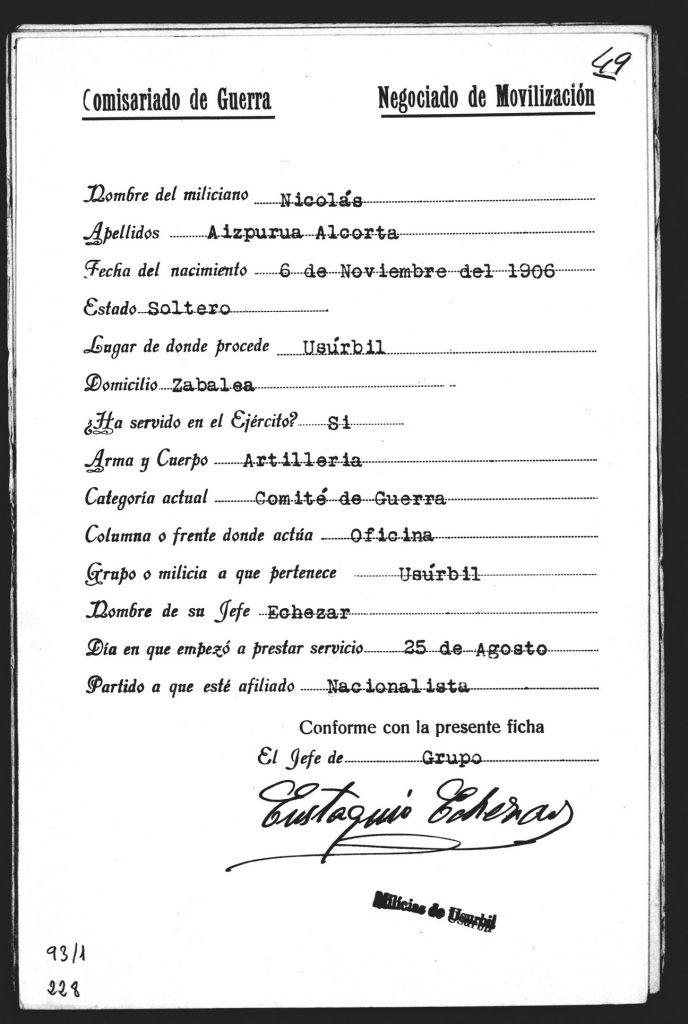 49
Comisariado de Guerra Negociado de Movilización
Nombre del miliciano Nicolás
Apellidos Aizpurua Alcorta
Fecha del nacimiento 6 de Noviembre del 1906
Estado Soltero
Lugar de donde procede Usúrbil
Domicilio Zabalea
¿Ha servido en el Ejército? Si
Arma y Cuerpo Artilleria
Categoría actual Comité de Guerra
Columna o frente donde actúa Oficina
Grupo o milicia a que pertenece Usúrbil
Nombre de su Jefe Echezar
Día en que empezó a prestar servicio 25 de Agosto
Partido a que esté afiliado Nacionalista
Conforme con la presente ficha
El Jefe de Grupo
Eustaquio Echezar
Milicias de Usurbil
93/1
228